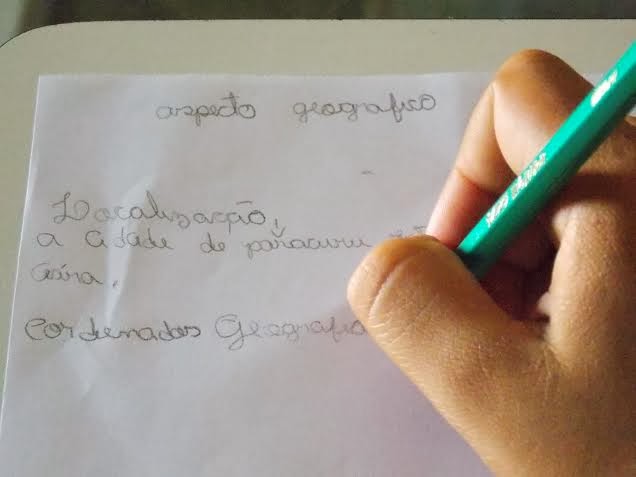 aspecto geografico
Localização,
a cidade de
Ceára.
Cordenadas Geografica